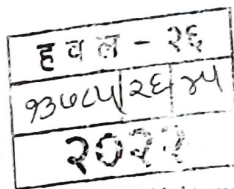 हवल - २६
१३७८५ २६ ४५
२०२२